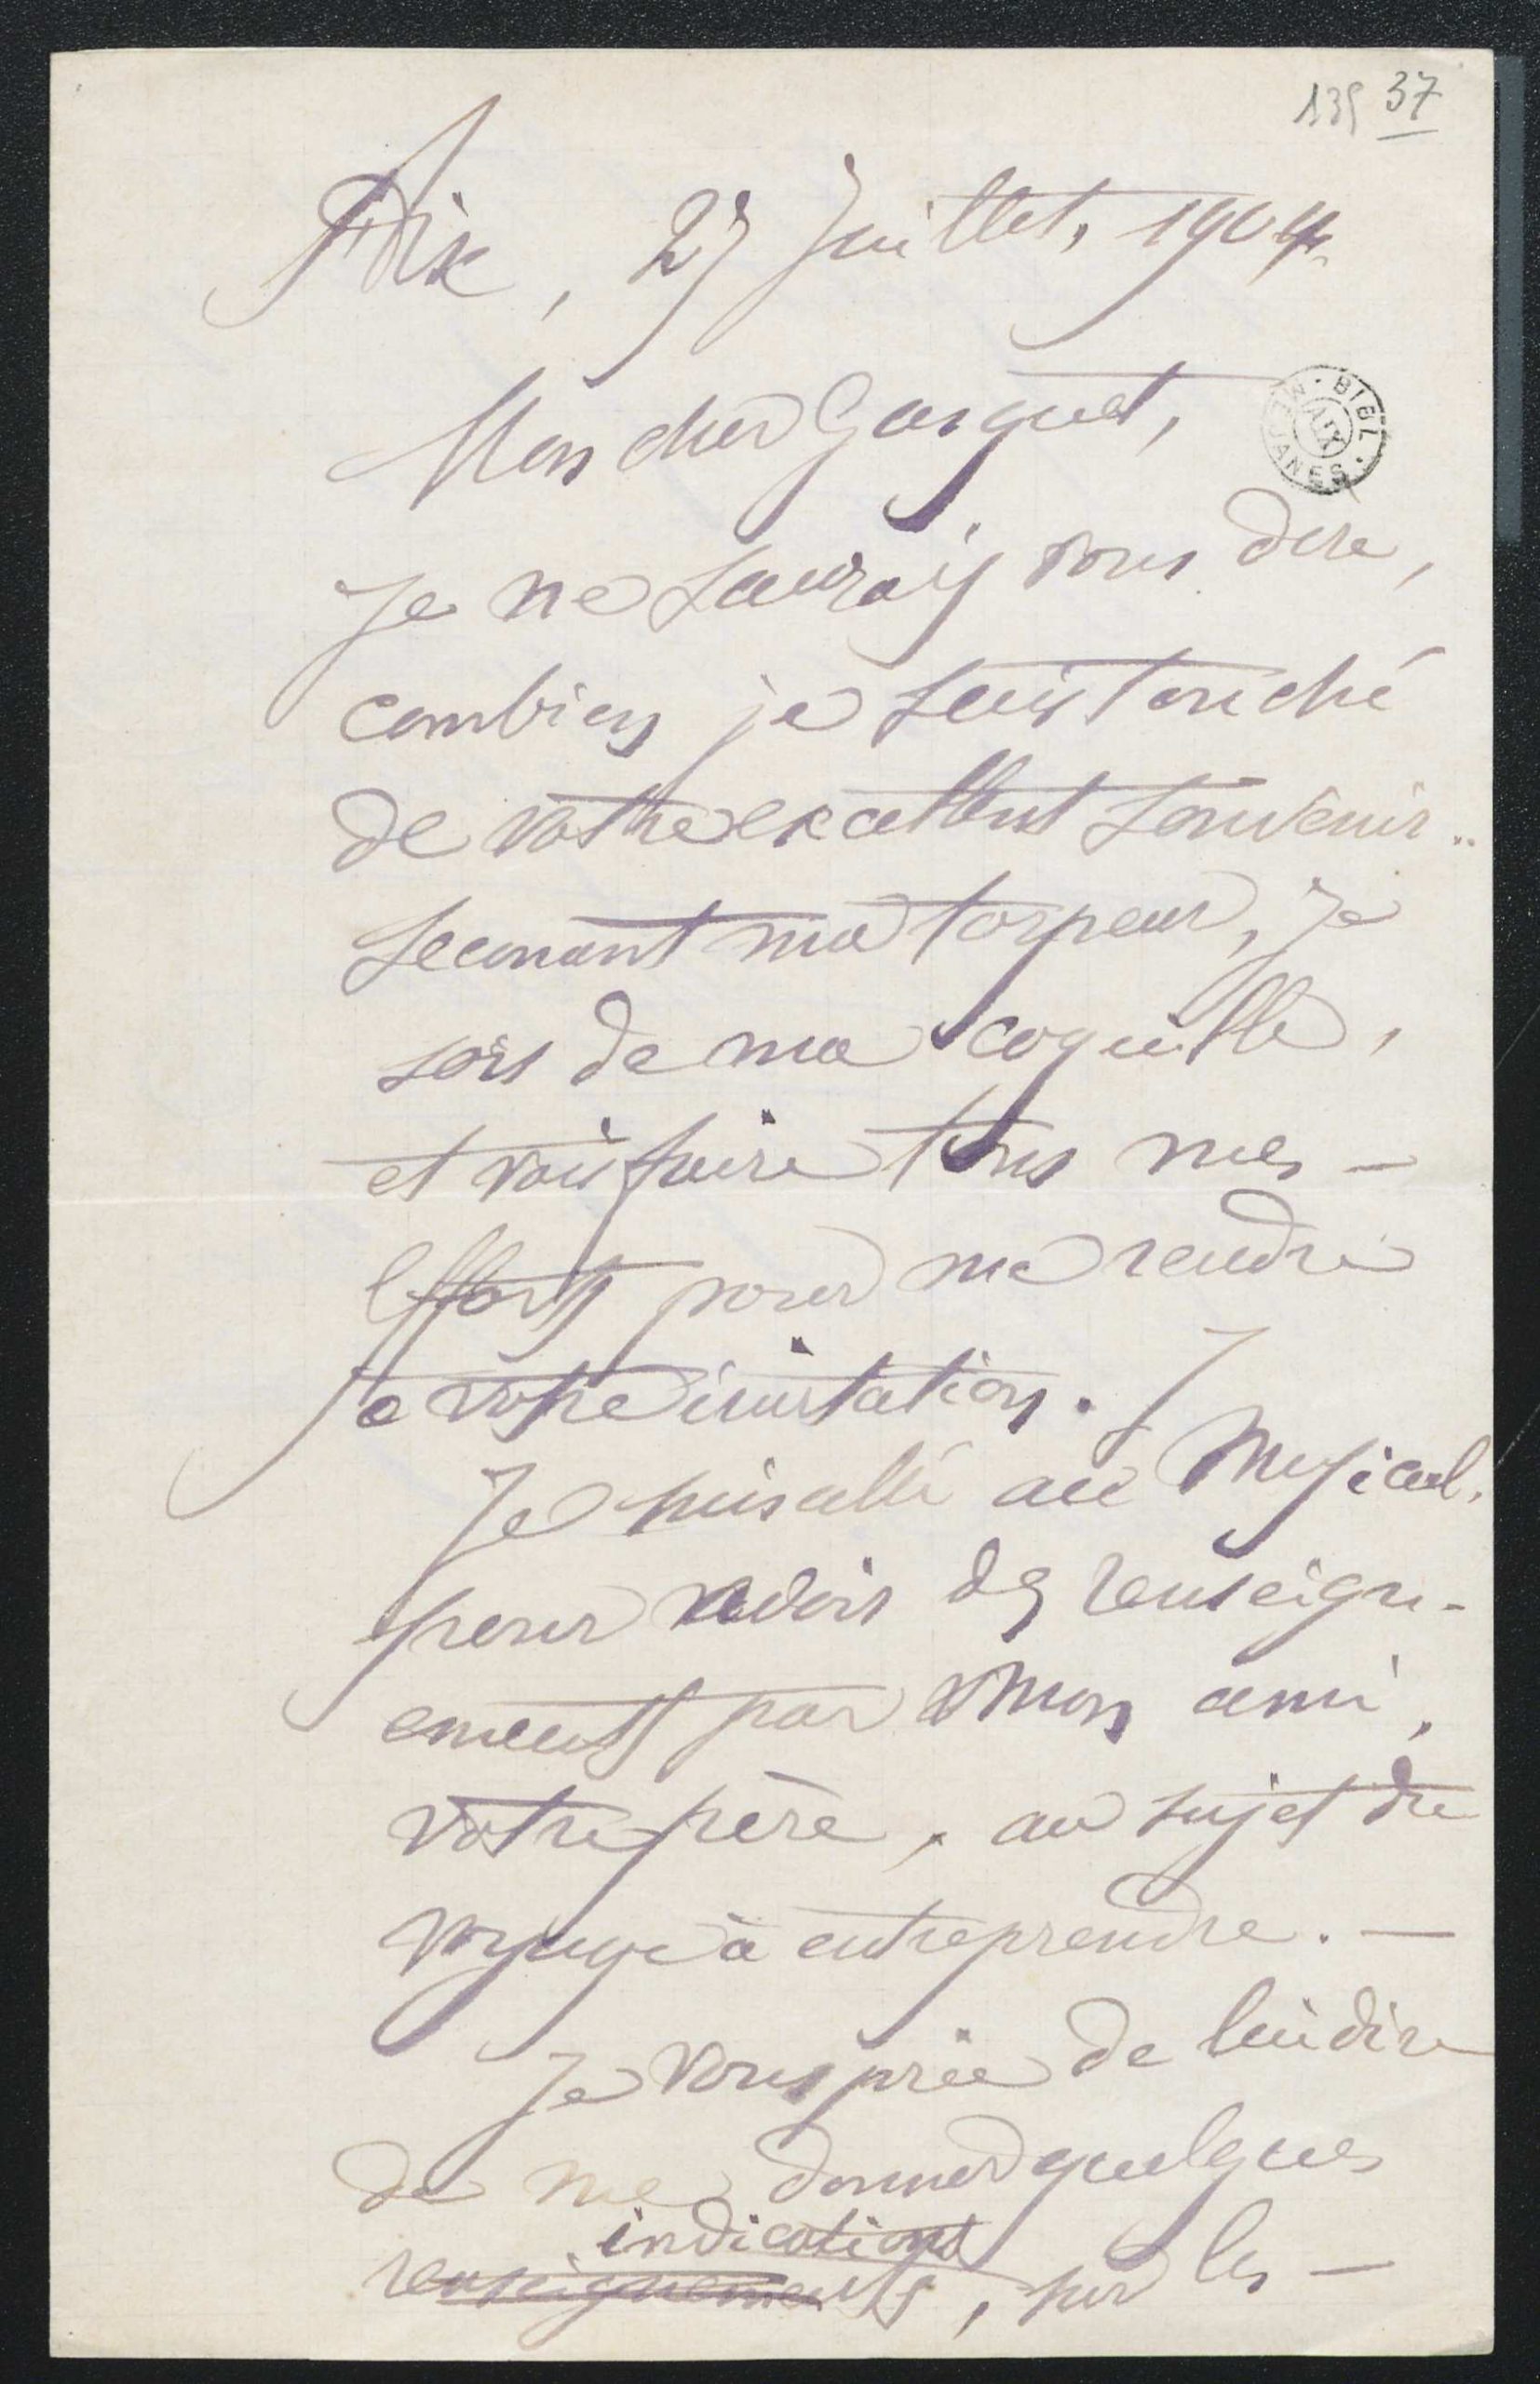 135 37
Aix, 27 Juillet, 1904.
BIBL. MEJANES
AIX
Mon cher Gasquet,
Je ne saurais vous dire,
combien je suis touché
de votre excellent souvenir..
Secouant ma torpeur, je
sors de ma coquille,
et vais faire tous mes —
efforts pour me rendre
a votre invitation.
Je suis allé au Musical.
pour avoir des renseign-
ements par mon ami,
votre père, au sujet du
voyage à entreprendre. —
Je vous prie de lui dire
de me donner quelques
indications
renseignements, sur les —